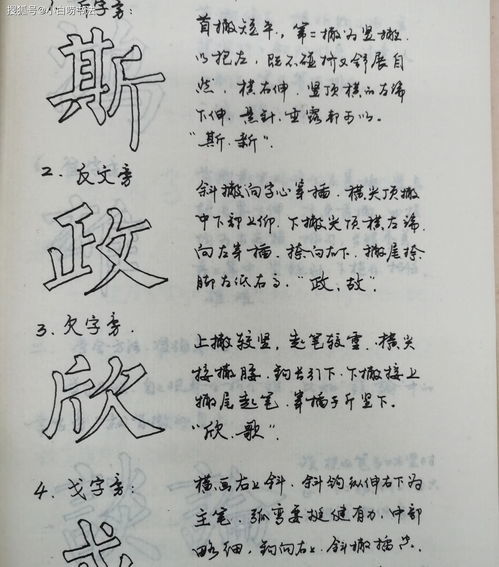 搜狐号@小白唠书法
字旁:
斯
首撇短平,第二撇为竖撇.
以抱左,既不碰折又舒展自
然,横右伸,竖顶横的左端
下伸.悬针.垂露都可以。
"斯.新".
2、反文旁
政
斜撇向字心穿插.横尖顶撇
中下部上仰.下撇尖顶横左端.
向左穿插.捺向右下.撇尾捺
脚左低右高."政,故".
3、欠字旁.
欣
上撇较竖,起笔较重.横尖
接撇腰.钩长引下.下撇接上
撇尾起笔.穿插于斤竖下。
"欣.歌".
4、戈字旁:
横画右上斜.斜钩纵伸右下为
主笔.弧弯要挺健有力,中部
略细,钩向右上.斜撇插